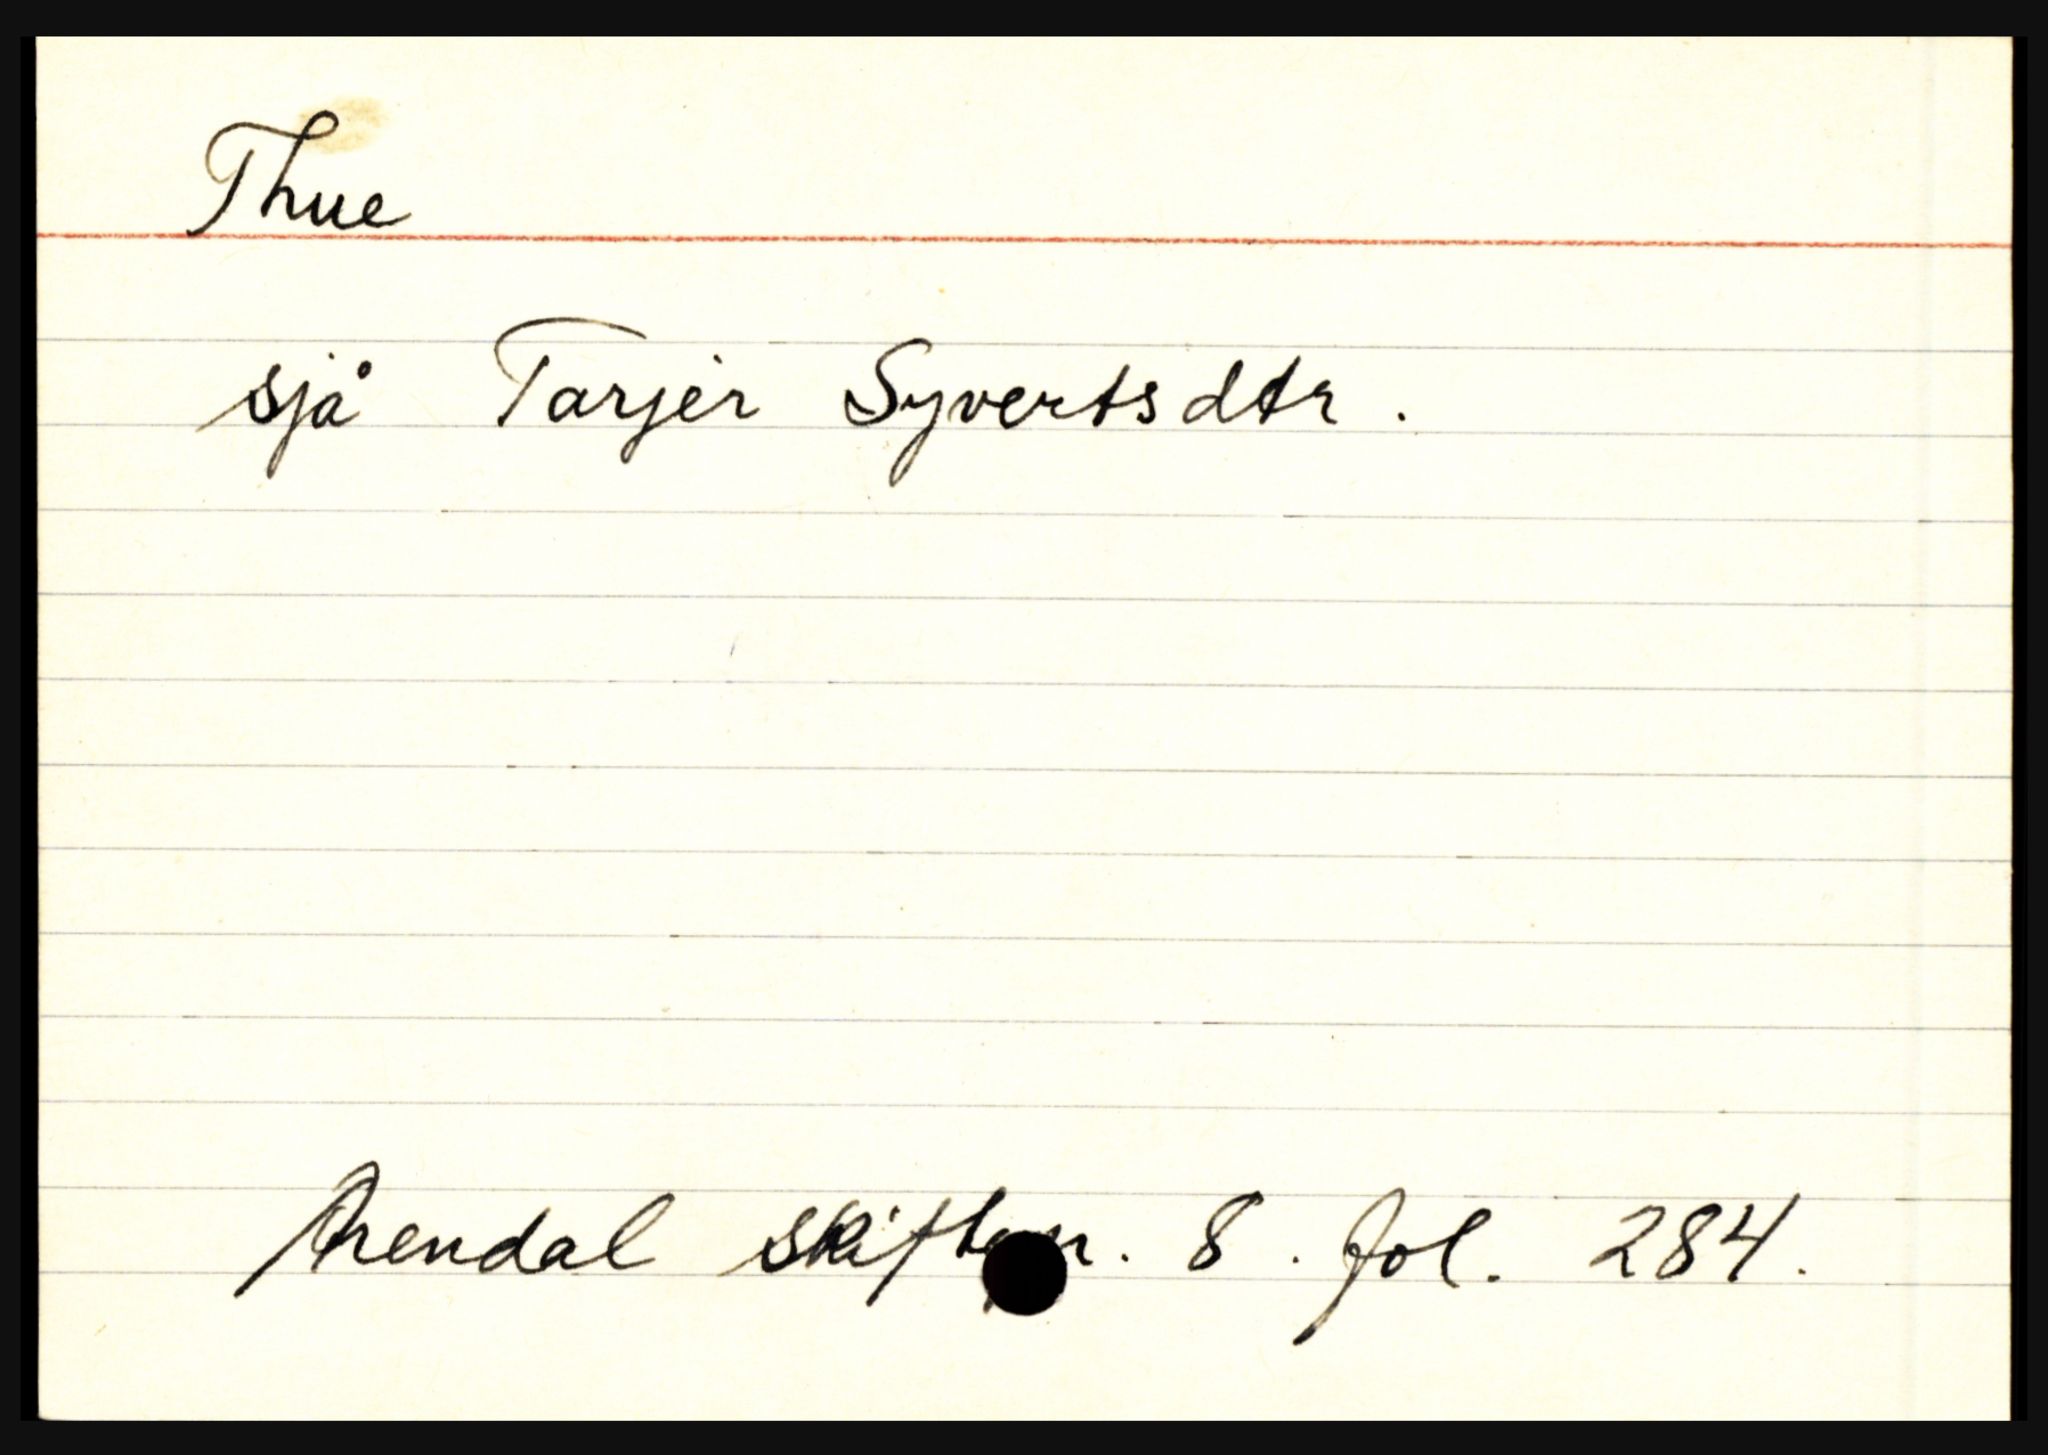 Thue
sjå Tarjer Syvertsdtr.
Arendal 8. fol. 284.